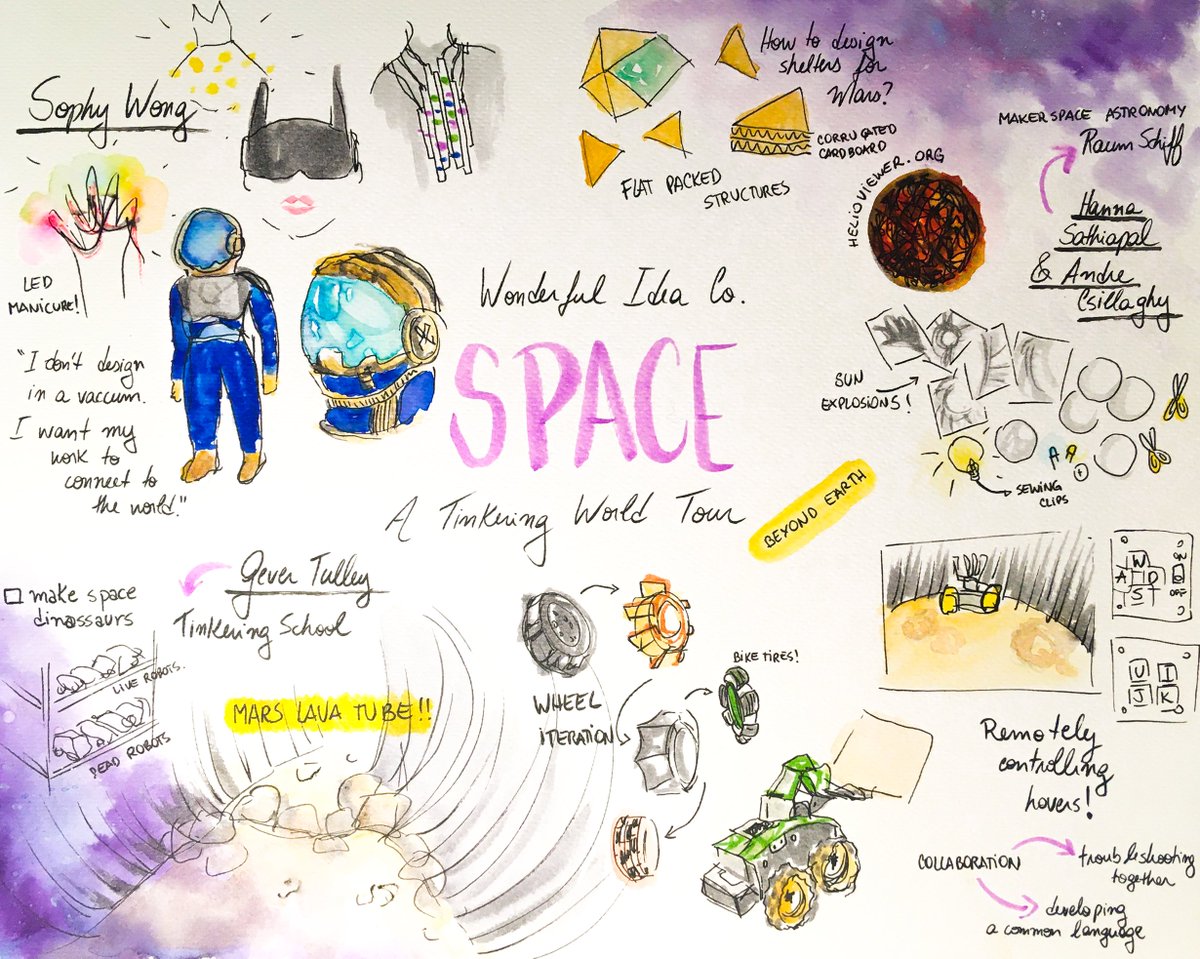 Sophy Wong
LED
MANICURE!
"I don't design
in a vaccum.
I want my
work to
connect to
the world."
How to design
shelters for
Mars?
CORRUGATED
CARDBOARD
FLAT PACKED
STRUCTURES
MAKERSPACE ASTRONOMY
Raum Schiff
HELIOVIEWER.ORG
Hanna
Sathiapal
& Andre
Csillaghy
SUN
EXPLOSIONS!
SEWING
CLIPS
Wonderful Idea Co.
SPACE
A Tinkering World Tour
BEYOND EARTH
Gever Tulley
Tinkering School
make space
dinassaurs
LIVE ROBOTS.
DEAD ROBOTS
MARS LAVA TUBE!!
WHEEL
ITERATION
BIKE TIRES!
W
A D
S T
ON
OFF
U I
J K
Remotely
controlling
hovers!
COLLABORATION
troubleshooting
together
developing
a common language